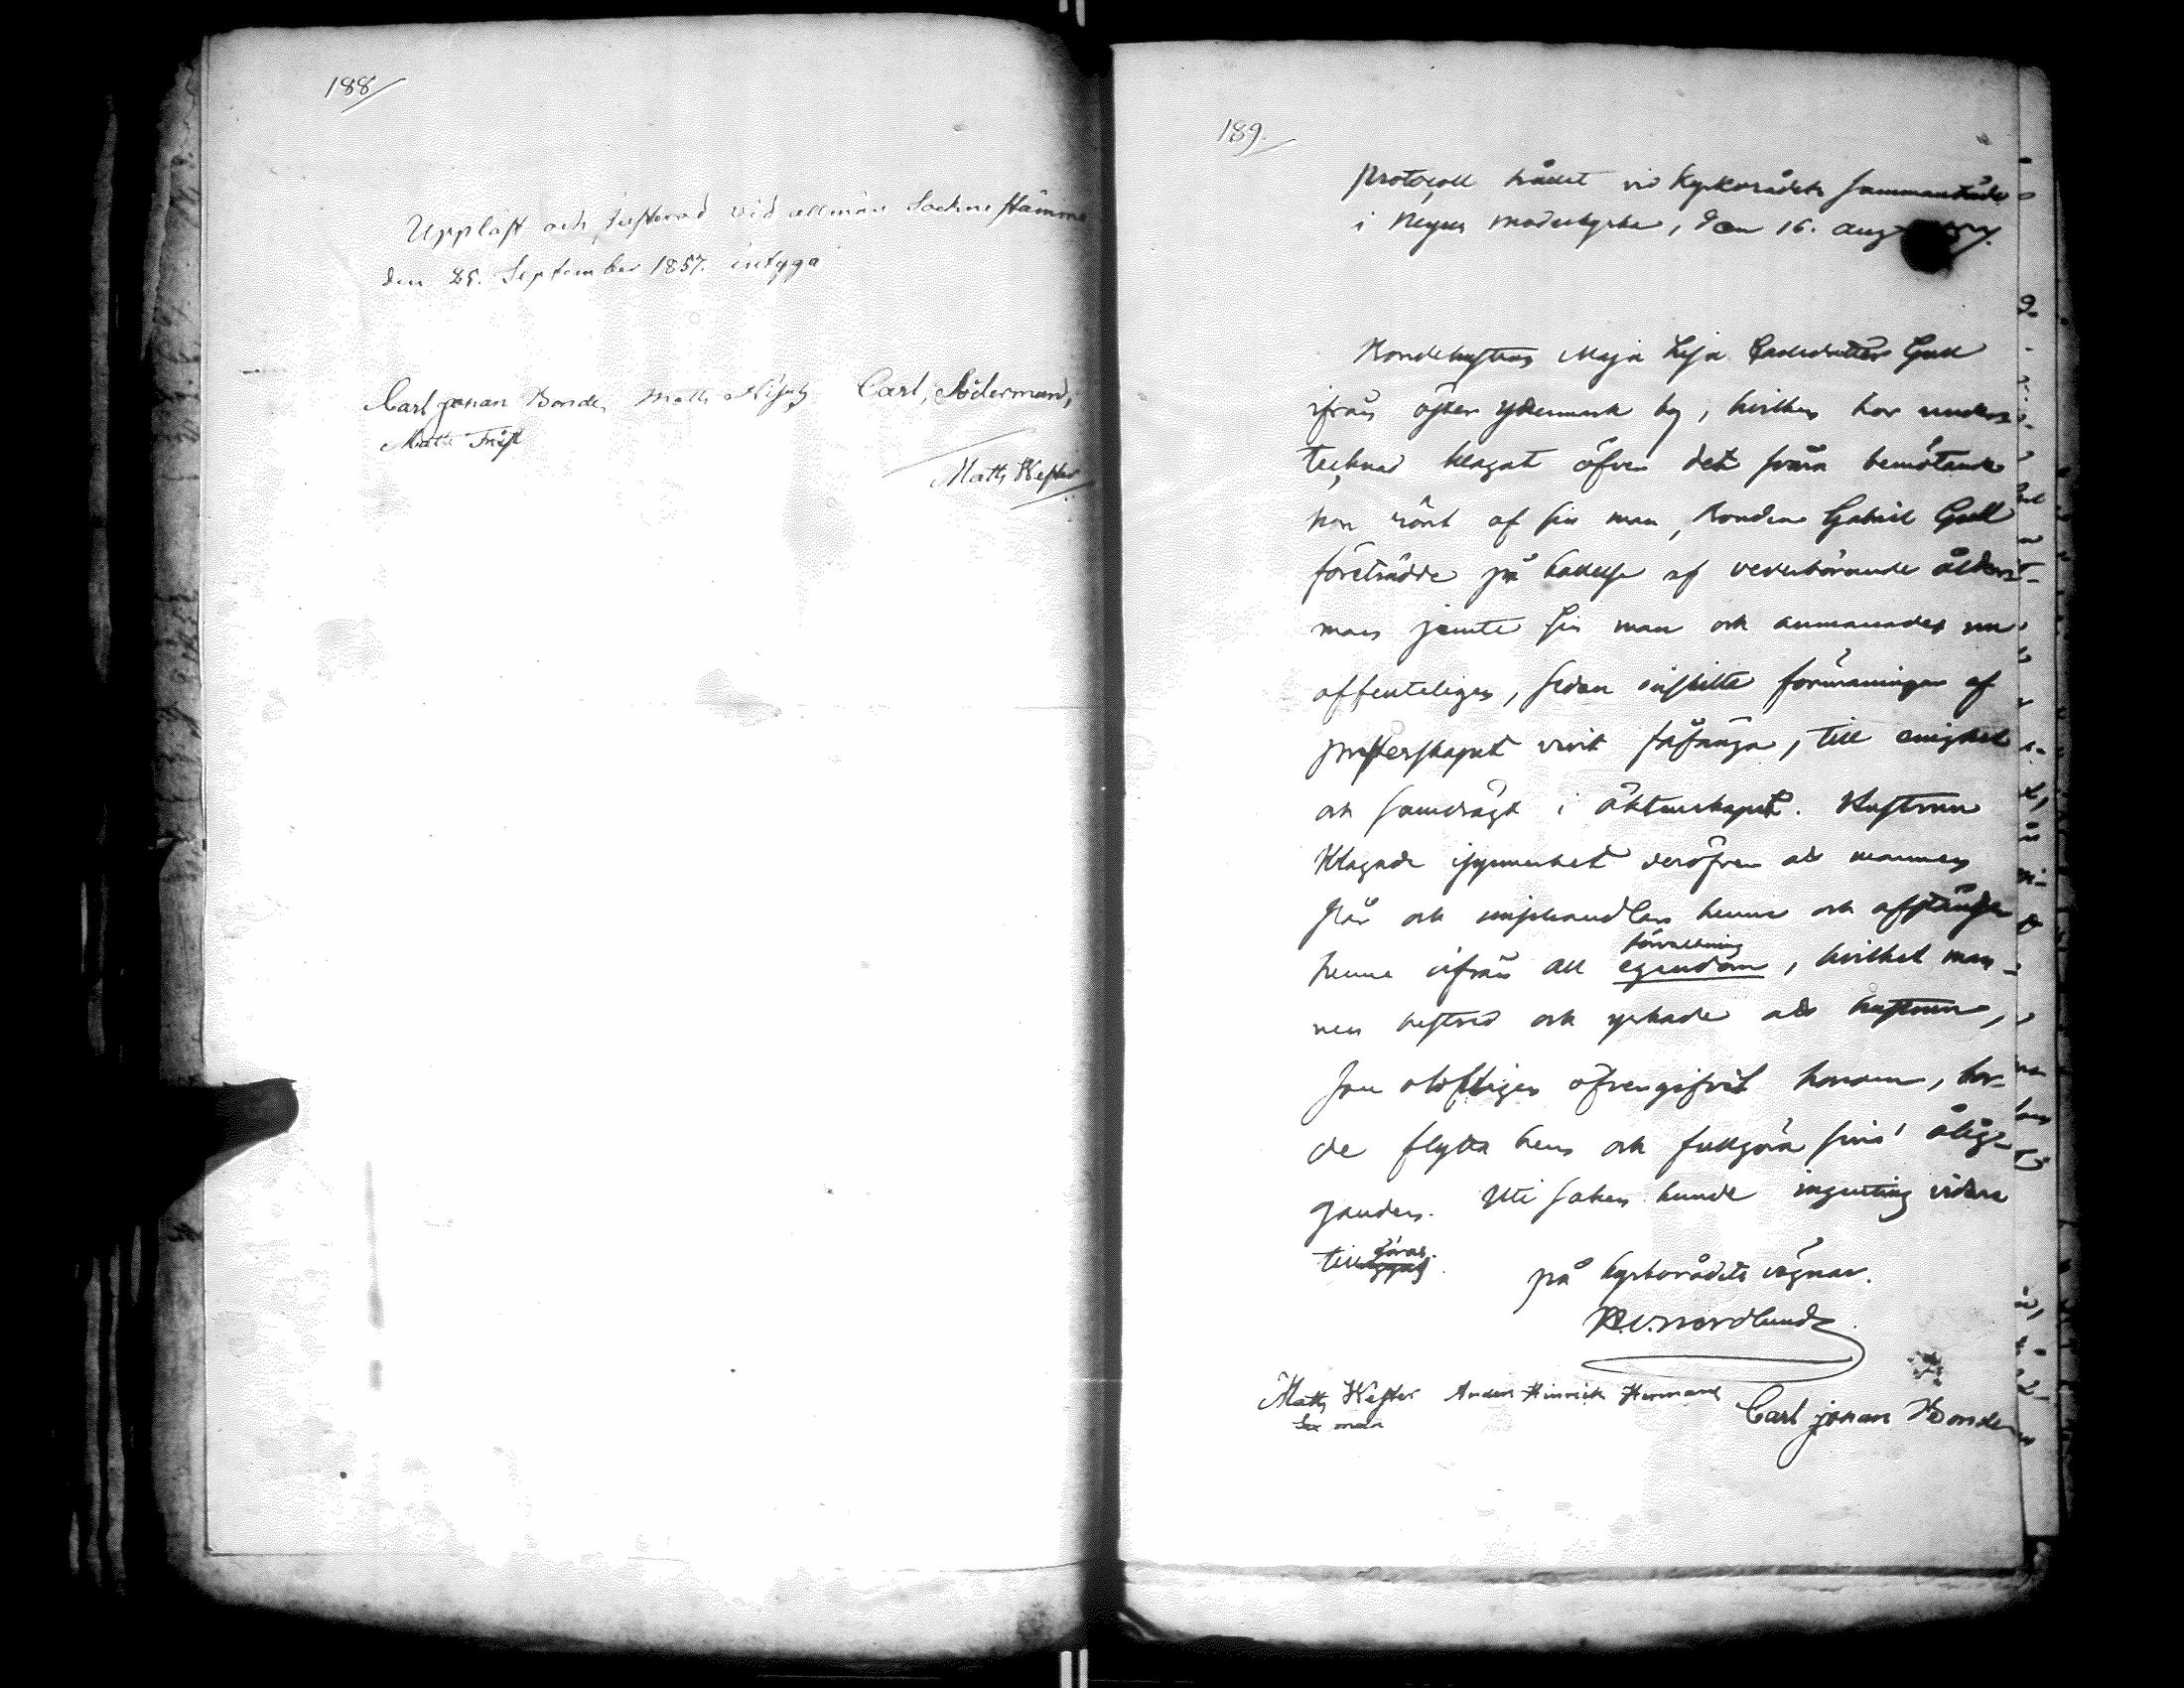 188
Uppläst och justerad vid allmän Sockne stämma
den 25. September 1857. intyga
Carl johan Bonde, Matts Carl, Söderman,
Matts Frist
Matts Wester
189.
Protocoll hållet vid Kyrkorådets sammanträde
i Nerpes moderkyrka, den 16. aug
Bondehustrun Maja Lisa Gull
ifrån öfter yttermark by, hvilken hos under-
tecknad klagat öfver det svåra bemötande
hon rönt af sin man, bonden Gabriel Gull
företrädde på kallelse af vederbörande ålder-
man jemte sin man och anmanades nu
offenteligen, sedan enskilta förmaningar af
presterskapet varit fåfänga, till enighet
och samdrägt i äktenskapet. Hustrun
klagade isynnerhet deröfver att mannen
slår och misshandlar henne och afstänger
förvaltning
henne ifrån all egendom, hvilket man-
nen bestred och yrkade att hustrun,
som olofligen öfvergifvit honom, bor-
de flytta hem och fullgöra sina ålig-
ganden. Uti saken kunde ingenting vidare
göras.
till
på kyrkorådets vägnar.
Nordlund
Matts Wester Anders Hinrich Hermans Carl johan Bonde
Sex man